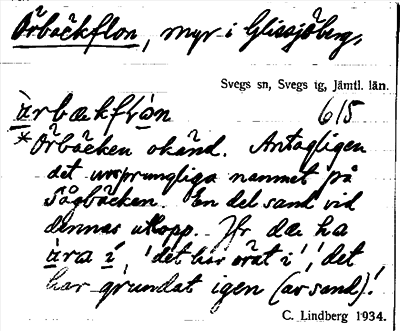 Örbäckflon, myr i Glissjöberg,
Svegs sn, Svegs tg, Jämtl. län.
àrbækflòn 6/5
*Örbäcken okänd. Antagligen
det ursprungliga namnet på
Sågbäcken. En del sand vid
dennas utlopp. Jfr dæ ha
àra í, 'det har örat i', 'det
har grundat igen (av sand)'.
C. Lindberg 1934.